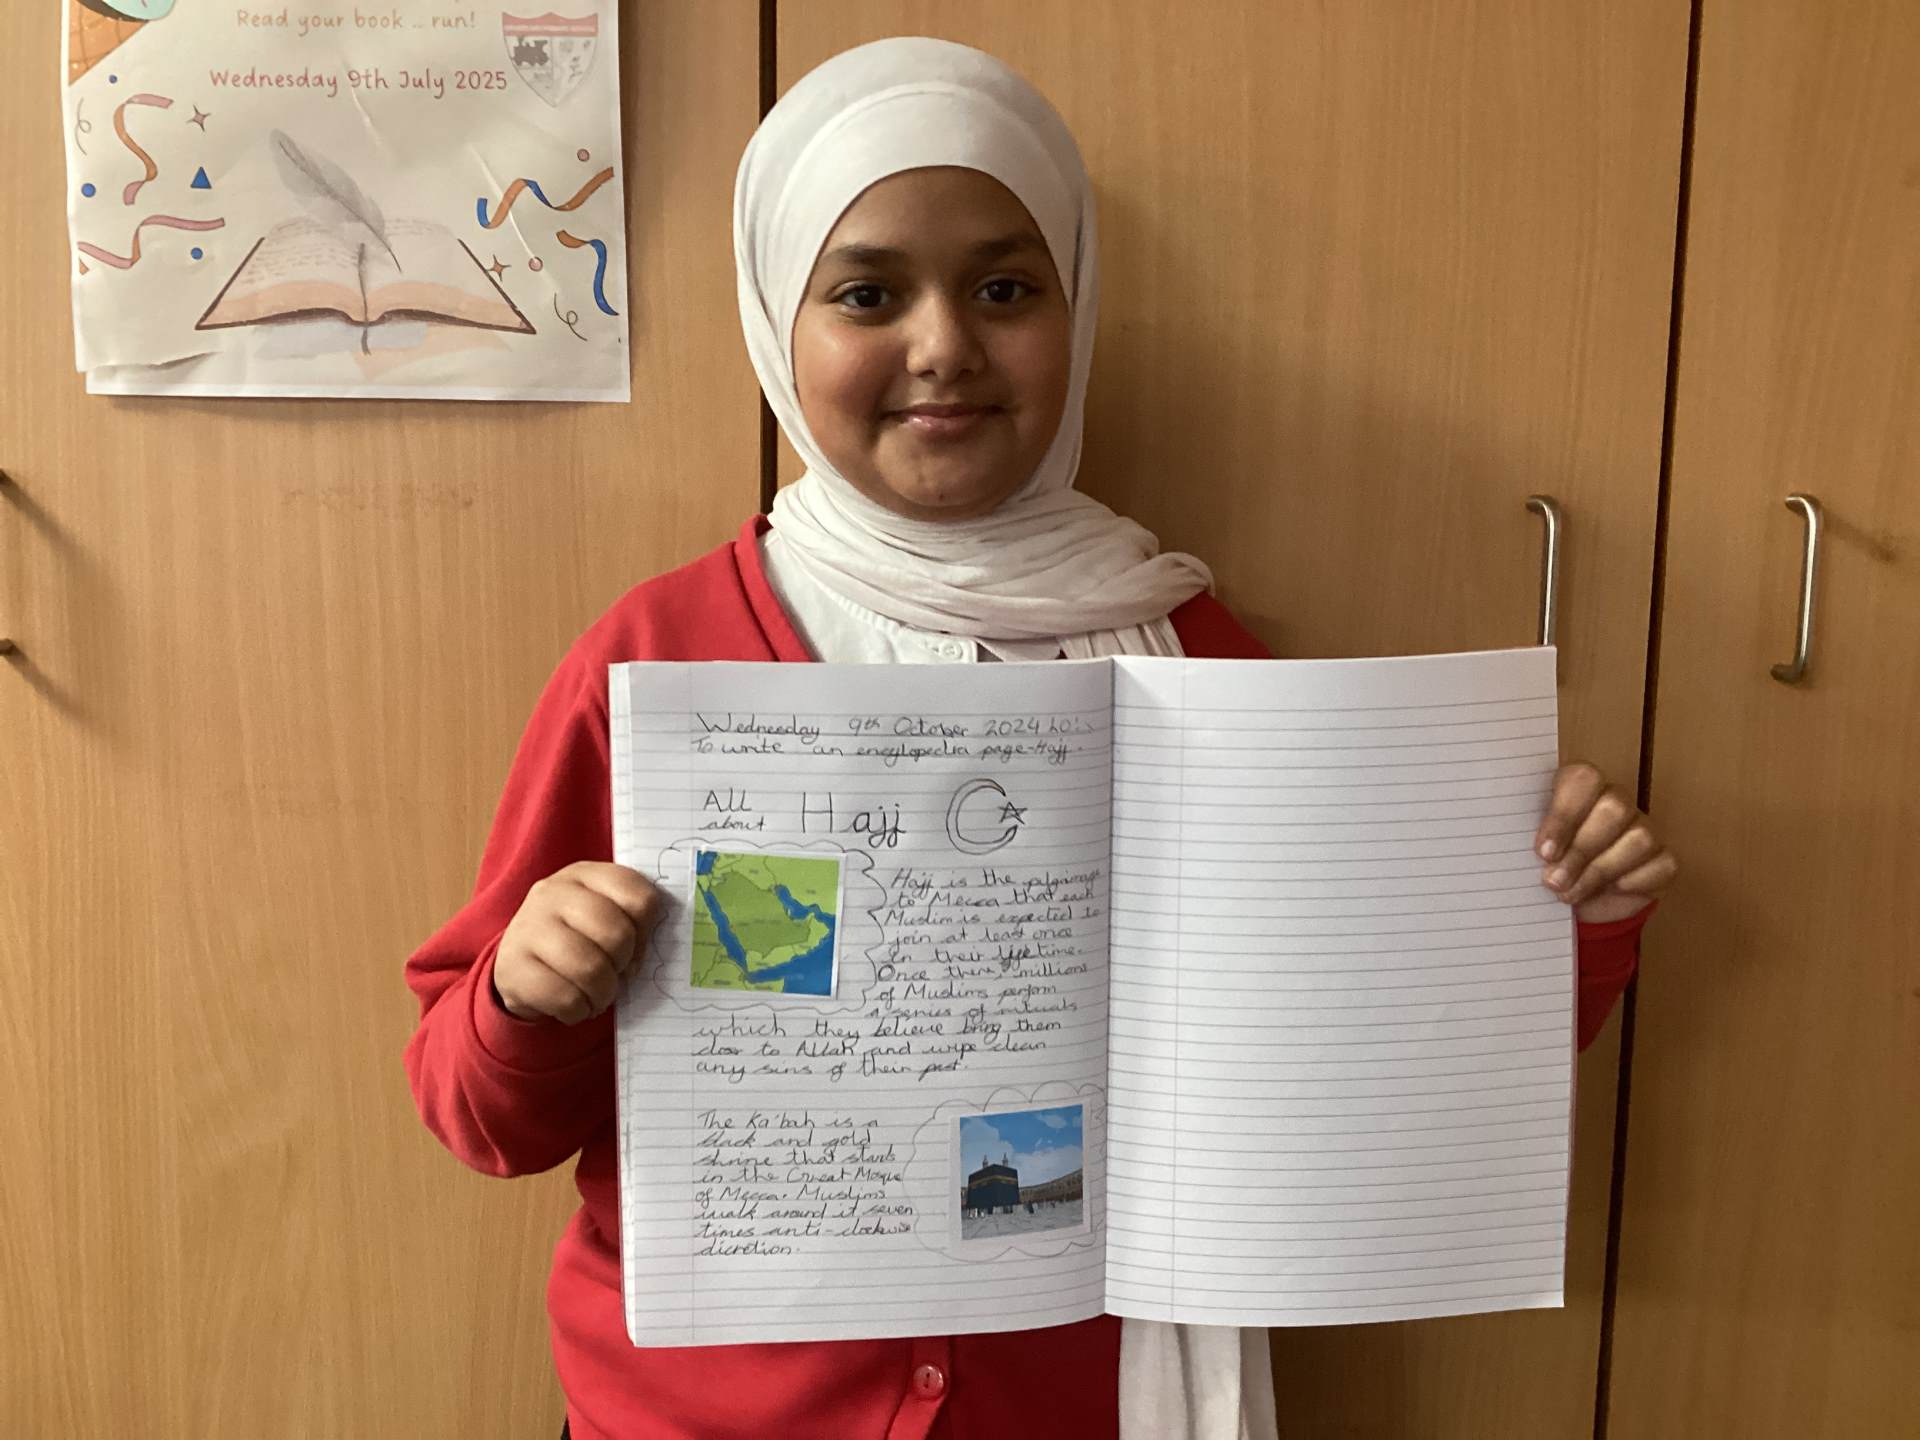 Read your book .. run!
Wednesday 9th July 2025
Wednesday 9th October 2024 LO:
To write an encylopedia page-Hajj.
All about Hajj
Hajj is the pilgrimage
to Mecca that each
Muslim is expected to
join at least once
in their lifetime.
Once there, millions
of Muslims perform
a series of rituals
which they believe bring them
to Allah and wipe clean
any sins of their past.
The Ka'bah is a
black and gold
shrine that stands
in the Great Mosque
of Mecca. Muslims
walk around it seven
times anti-clockwise
dicretion.